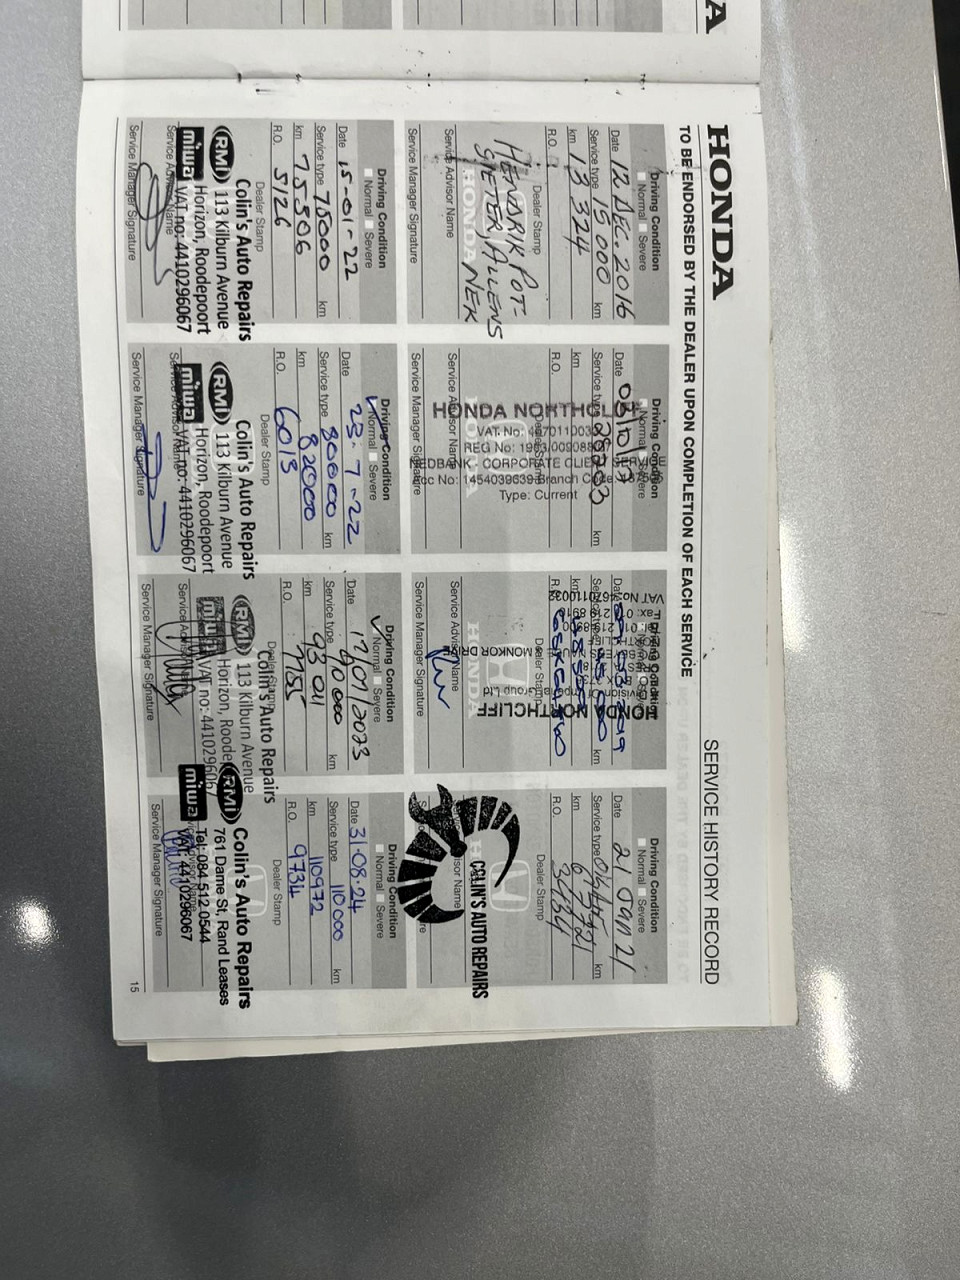 HONDA
SERVICE HISTORY RECORD
TO BE ENDORSED BY THE DEALER UPON COMPLETION OF EACH SERVICE
Driving Condition
Normal Severe
Date 12 DEC. 2016
Service type 15 000 km
km 13 324
R.O.
Dealer Stamp
HENDRIK POT-
GIETER / ALLENS
NEK
HONDA
Service Advisor Name
Service Manager Signature
Driving Condition
Normal Severe
Date 03/10/17
Service type 28253 km
km
R.O.
HONDA NORTHCLIFF
VAT. No:
REG No:
NEDBANK - CORPORATE CLIENT
Acc No: 1454039639 Branch Code:
Type: Current
Dealer Stamp
HONDA
Service Advisor Name
Service Manager Signature
Driving Condition
Date
Service type km
km
R.O.
HONDA NORTHCLIFF
Dealer Stamp
HONDA
Service Advisor Name
Service Manager Signature
Driving Condition
Normal Severe
Date 21 Jan 21
Service type km
km
R.O.
Dealer Stamp
COLIN'S AUTO REPAIRS
Driving Condition
Normal Severe
Date 15-01-22
Service type 75000 km
km 75506
R.O. 5126
Dealer Stamp
Colin's Auto Repairs
RMI 113 Kilburn Avenue
Horizon, Roodepoort
miwa VAT no: 4410296067
Service Advisor Name
Service Manager Signature
Driving Condition
Normal Severe
Date 23-7-22
Service type 80000 km
km 82000
R.O. 6013
Dealer Stamp
Colin's Auto Repairs
RMI 113 Kilburn Avenue
Horizon, Roodepoort
miwa VAT no: 4410296067
Service Advisor Name
Service Manager Signature
Driving Condition
Normal Severe
Date 17/07/2023
Service type 90000 km
km 93 011
R.O. 7185
Dealer Stamp
Colin's Auto Repairs
RMI 113 Kilburn Avenue
Horizon,
miwa VAT no:
Service Manager Signature
Driving Condition
Normal Severe
Date 31.08.24
Service type 11000 km
km 110972
R.O. 9734
Dealer Stamp
Colin's Auto Repairs
RMI 761 Dame St, Rand Leases
Tel: 084 512 0544
miwa VAT: 4410296067
Service Manager Signature
15